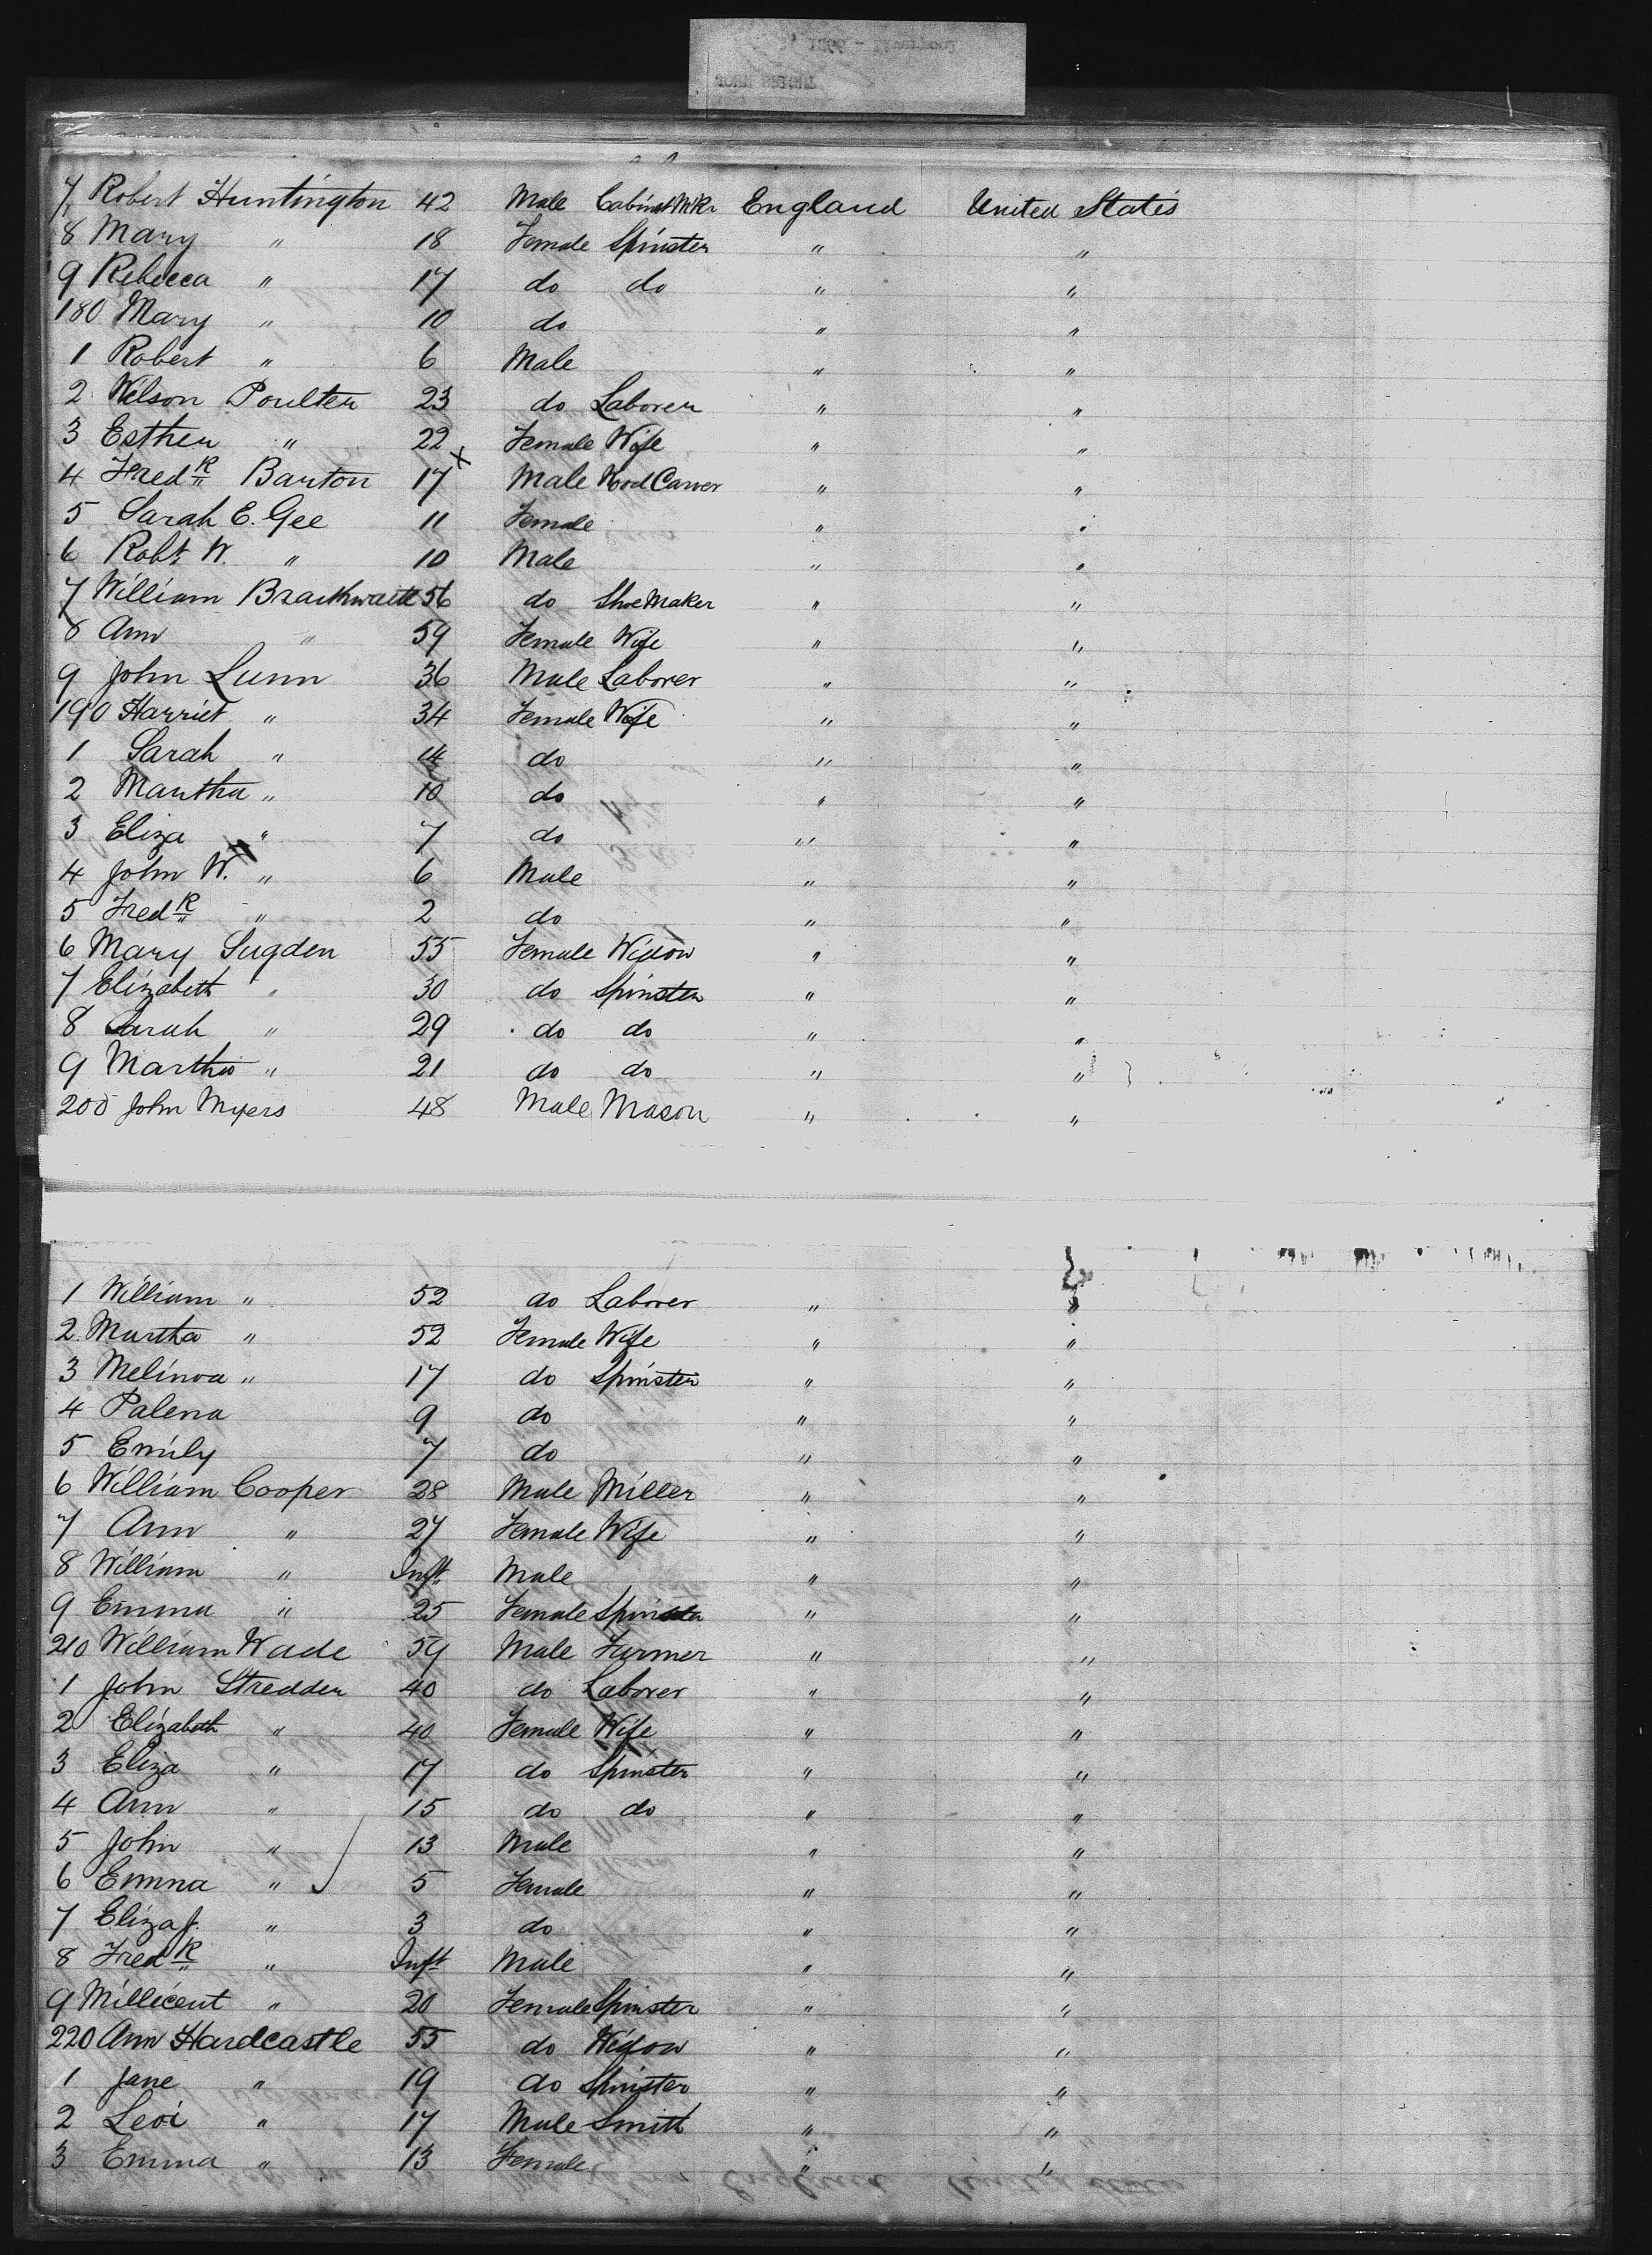 7 Robert Huntington 42 Male CabinetMkr England United States
8 Mary " 18 Female Spinster " "
9 Rebecca " 17 do do " "
180 Mary " 10 do " "
1 Robert " 6 Male " "
2 Wilson Poulter 23 do Laborer " "
3 Esther " 22 Female Wife " "
4 Fredk Barton 17 x Male Wood Carver " "
5 Sarah E. Gee 11 Female " "
6 Robt W. " 10 Male " "
7 William Braithwaite 56 do Shoe Maker " "
8 Ann " 59 Female Wife " "
9 John Lunn 36 Male Laborer " "
190 Harriet " 34 Female Wife " "
1 Sarah " 14 do " "
2 Martha " 10 do " "
3 Eliza " 7 do " "
4 John W. " 6 Male " "
5 Fredk " 2 do " "
6 Mary Sugden 55 Female Widow " "
7 Elizabeth " 30 do Spinster " "
8 Sarah " 29 do do " "
9 Martha " 21 do do " "
200 John Myers 48 Male Mason " "
1 William " 52 do Laborer " "
2 Martha " 52 Female Wife " "
3 Melinda " 17 do Spinster " "
4 Palena 9 do " "
5 Emily 7 do " "
6 William Cooper 28 Male Miller " "
7 Ann " 27 Female Wife " "
8 William " Inft Male " "
9 Emma " 25 Female Spinster " "
210 William Wade 59 Male Farmer " "
1 John Stredder 40 do Laborer " "
2 Elizabeth " 40 Female Wife " "
3 Eliza " 17 do Spinster " "
4 Ann " 15 do do " "
5 John " 13 Male " "
6 Emma " 5 Female " "
7 Eliza J. " 3 do " "
8 Fredk " Inft Male " "
9 Millicent " 20 Female Spinster " "
220 Ann Hardcastle 55 do Widow " "
1 Jane " 19 do Spinster " "
2 Levi " 17 Male Smith " "
3 Emma " 13 Female " "